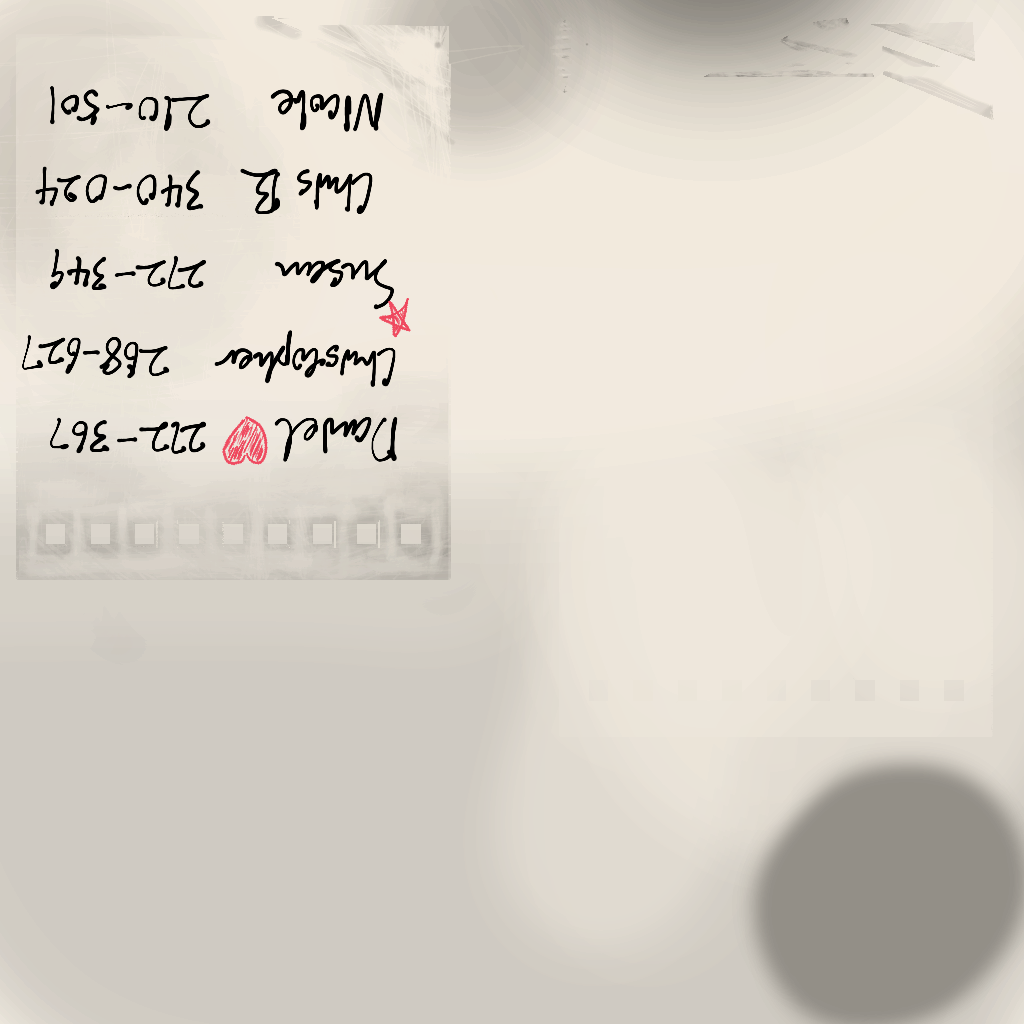 Daniel 272-367
Christopher 268-627
Susan 272-349
Chris B 340-024
Nicole 210-501